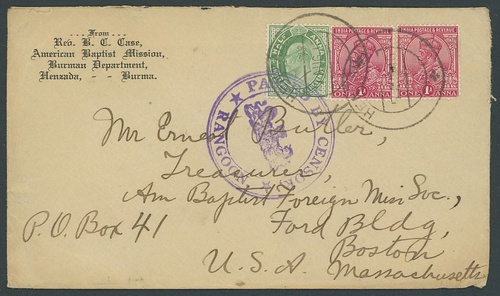 From
Rev. B. C. Case,
American Baptist Mission,
Burman Department,
Henzada, - - Burma.
HALF ANNA
INDIA POSTAGE & REVENUE
INDIA POSTAGE & REVENUE
1A ANNA
1A ANNA
PASSED BY CENSOR
RANGOON
Mr Ernest Butler,
Treasurer,
Am Baptist Foreign Miss Soc.,
P.O. Box 41
Ford Bldg,
Boston
U.S.A. Massachusetts